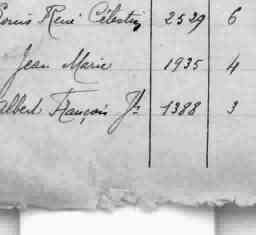 Louis René Célestin 2529 6
Jean Marie 1935 4
Albert François Jh 1388 3